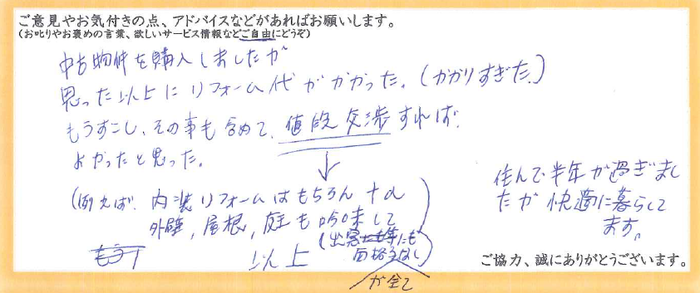 ご意見やお気付きの点、アドバイスなどがあればお願いします。
(お叱りやお褒めの言葉、欲しいサービス情報などご自由にどうぞ)
中古物件を購入しましたが
思った以上にリフォーム代がかかった。(かかりすぎた。)
もうすこし、その事も含めて、値段交渉すれば、
よかったと思った。
(例えば、内装リフォームはもちろん+α
外壁、屋根、庭も吟味して
以上
が全て
住んで半年が過ぎまし
たが快適に暮らして
ます。
ご協力、誠にありがとうございます。